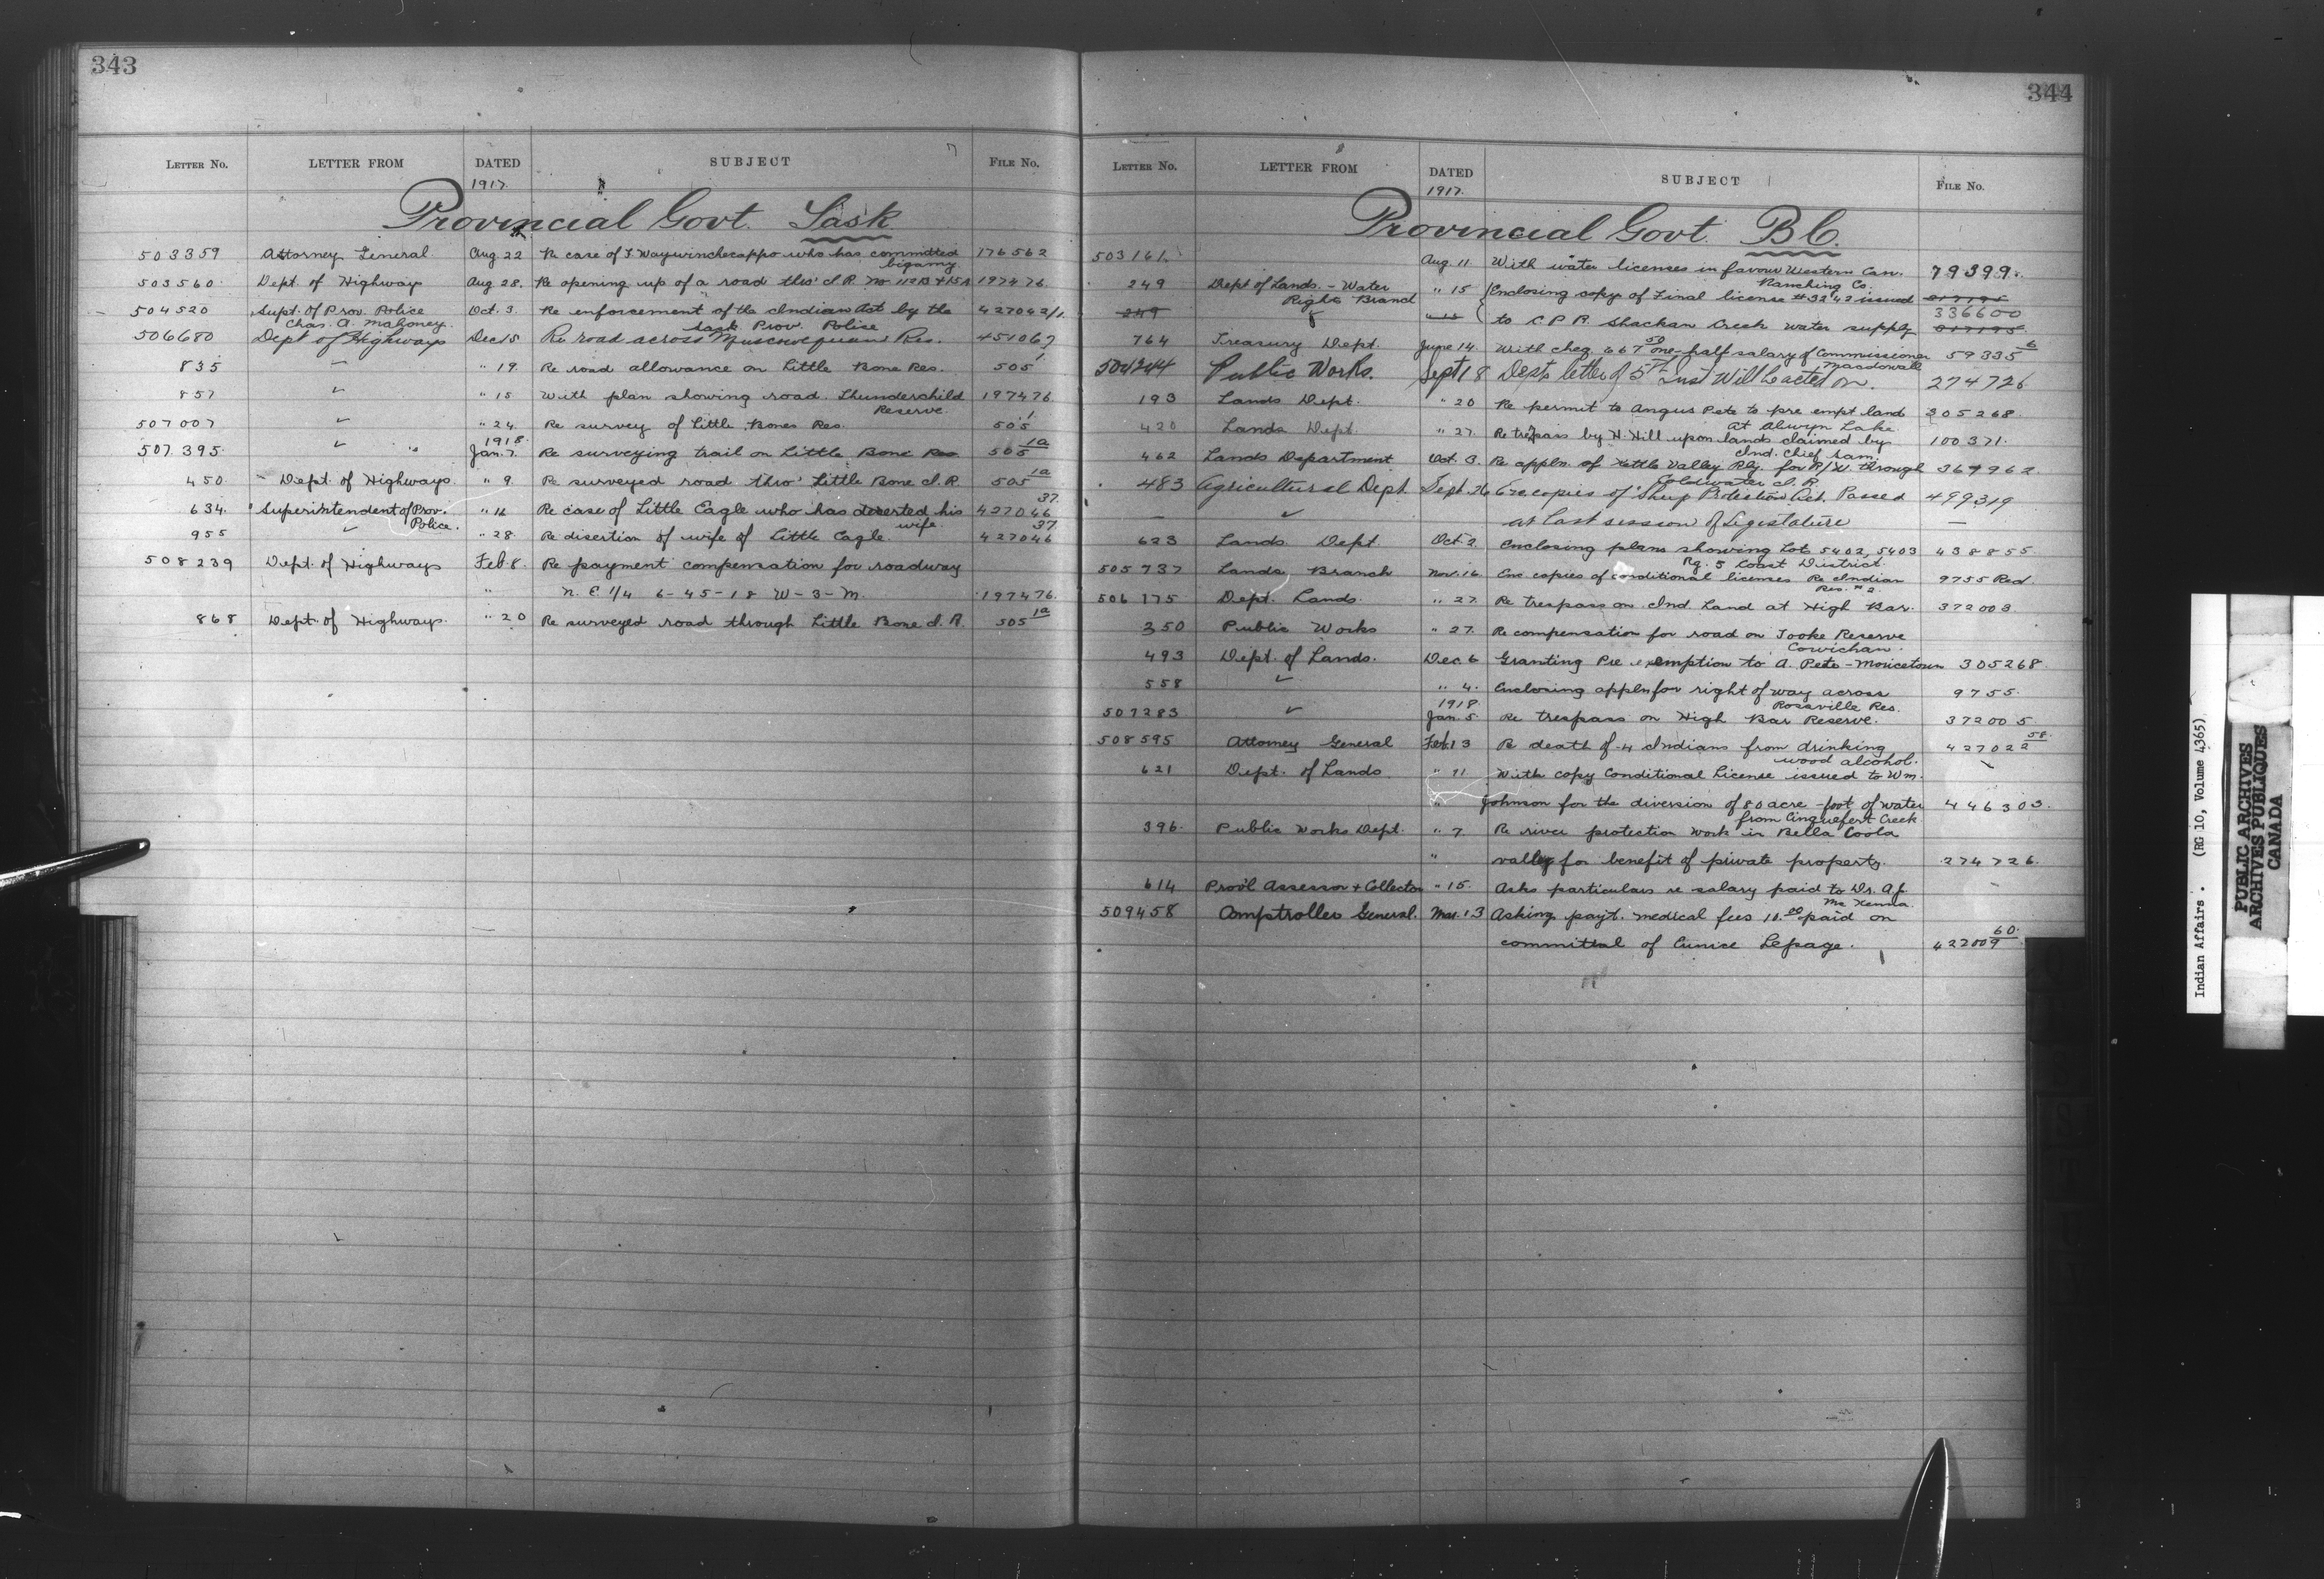 343
LETTER NO. LETTER FROM DATED SUBJECT FILE NO.
1917.
Provincial Govt. Sask
503359 Attorney General. Aug. 22 Re case of J. Waywinchecappo who has committed 176562
bigamy.
503560 Dept. of Highways Aug 28. Re opening up of a road thro' I.R. No 112B & 115A 197476.
504520 Supt. of Prov. Police Oct. 3. Re enforcement of the Indian Act by the 427042/1.
Chas. A. Mahoney. Sask. Prov. Police
506680 Dept of Highways Dec 15 Re road across Muscowequan Res. 451067
835 " 19. Re road allowance on Little Bone Res. 505 1.
857 ✓ " 15 With plan showing road. Thunderchild 197476
Reserve.
507007 ✓ " 24 Re survey of Little Bones Res. 505 1
1918.
507395. ✓ " Jan. 7. Re surveying trail on Little Bone Res. 505 1a
450. Dept. of Highways. " 9. Re surveyed road thro' Little Bone I.R. 505 1a
634. Superintendent of Prov. " 16 Re case of Little Eagle who has deserted his 427046 37.
Police. wife.
955 ✓ " 28. Re disertion of wife of Little Eagle. 427046 37
508239 Dept. of Highways Feb. 8. Re payment compensation for roadway
" N.E. 1/4 6-45-18 W-3-M. 197476.
868 Dept. of Highways. " 20 Re surveyed road through Little Bone I.R. 505 1a
344
LETTER NO. LETTER FROM DATED SUBJECT FILE NO.
1917.
Provincial Govt. B.C.
503161. Aug. 11. With water licenses in favour Western Can. 79399.
Ranching Co.
249 Dept of Lands. - Water " 15 Enclosing copy of Final license # 3242 issued
Rights Branch 336600
249 ✓ " 15 to C.P.R. Shackan Creek water supply
764 Treasury Dept. June 14. With cheq. 667 50 one-half salary of Commissioner 59335 6
Macdowall
504244 Public Works. Sept 18 Depts letter of 5th Inst Will be acted on. 274726
193 Lands Dept. " 20 Re permit to Angus Pete to pre empt land 305268.
at Alwyn Lake
420 Lands Dept. " 27. Re trepass by H. Hill upon lands claimed by 100371.
Ind. Chief Sam.
462 Lands Department Oct. 3. Re appln. of Kettle Valley Rly. for R/W. through 367962
Coldwater I.R.
483 Agricultural Dept. Sept. 26 6 re copies of "Sheep Protection Act. Passed 499319
— ✓ at last session of Legislature —
623 Lands Dept. Oct. 2. Enclosing plans showing Lots 5402, 5403 438855
Rg. 5 Coast District.
505737 Lands Branch Nov. 16. Enc copies of conditional licenses Re Indian 9755 Red.
Res. # 2.
506175 Dept. Lands. " 27. Re trespass on Ind. Land at High Bar. 372003.
350 Public Works " 27. Re compensation for road on Tooke Reserve
Cowichan.
493 Dept. of Lands. Dec. 6 Granting Pre-emption to A. Pete - Moricetown 305268.
558 ✓ " 4. Enclosing appln for right of way across 9755.
1918. Rossville Res.
507283 ✓ Jan. 5. Re trespass on High Bar Reserve. 372005
508595 Attorney General Feb. 13 Re death of 4 Indians from drinking 427022 58.
wood alcohol.
621 Dept. of Lands " 11 With copy Conditional License issued to Wm.
" Johnson for the diversion of 80 acre-foot of water 446303.
from Cinquefert Creek.
396. Public Works Dept. " 7. Re river protection work in Bella Coola
" valley for benefit of private property. 274726.
614 Prov'l Assessor & Collector " 15. Asks particulars re salary paid to Dr. A.J.
McKenna.
509458 Comptroller General. Mar. 13 Asking payt. medical fees 10.00 paid on
committal of Eunice Lepage. 422009 60.
Indian Affairs. (RG 10, Volume 4365)
PUBLIC ARCHIVES
ARCHIVES PUBLIQUES
CANADA